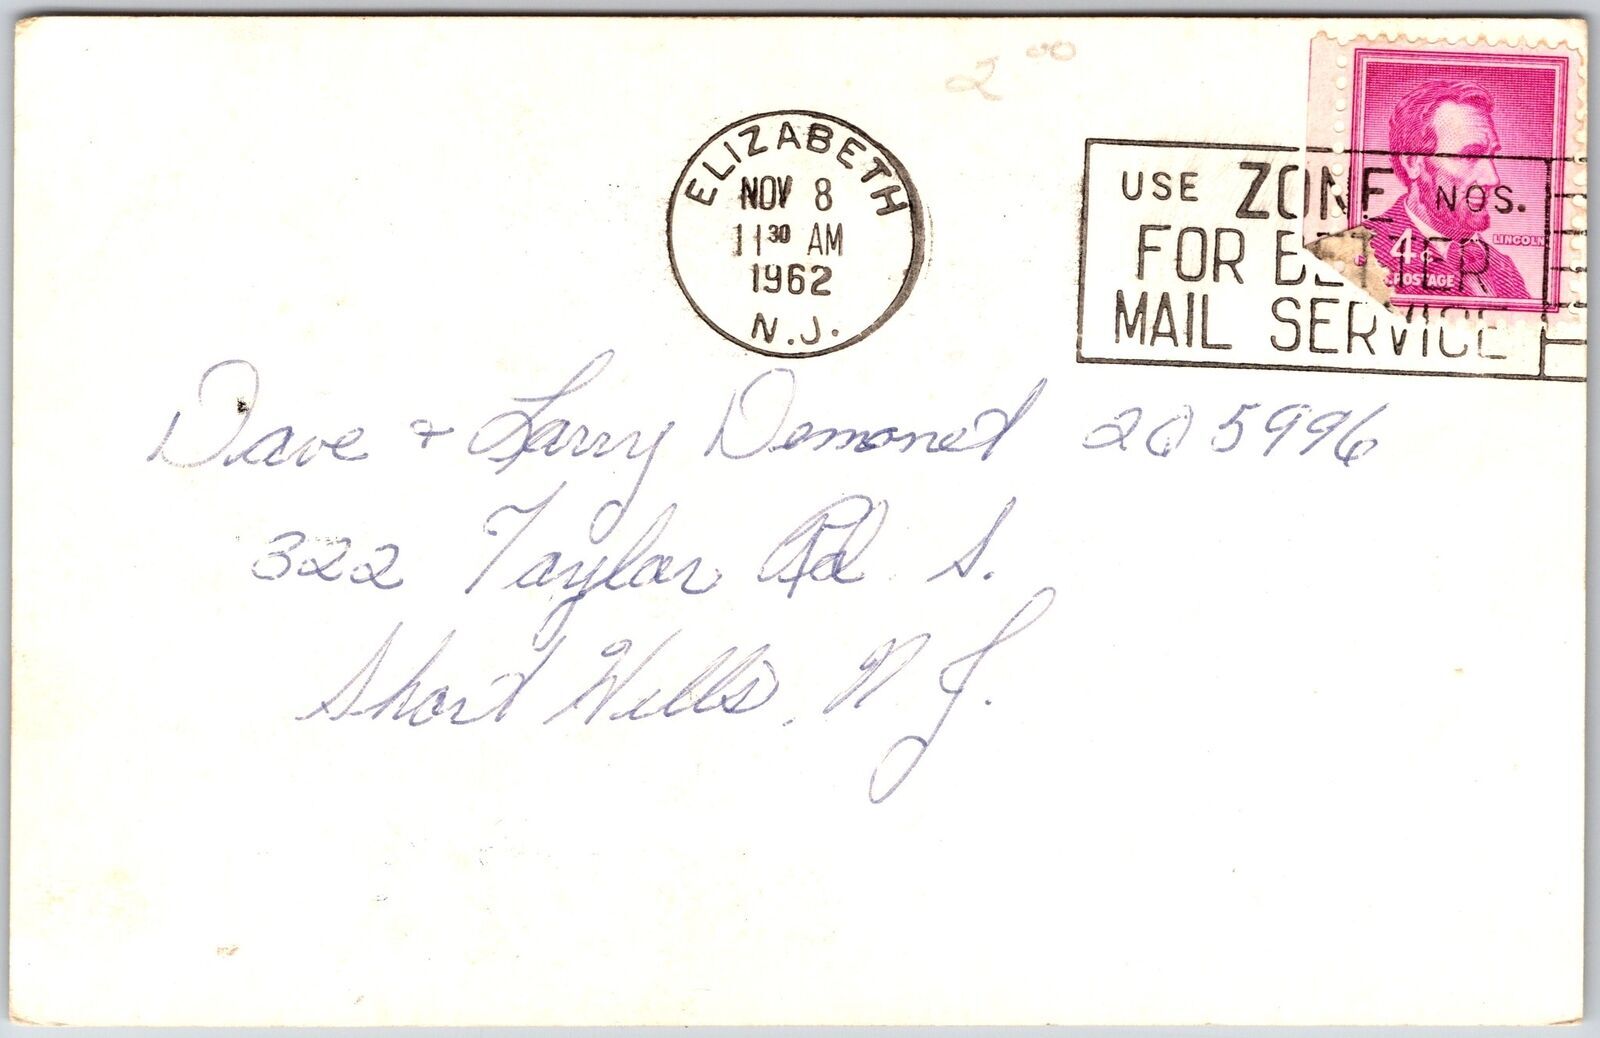 2 00
ELIZABETH
NOV 8
11 30 AM
1962
N.J.
USE ZONE NOS.
FOR BETTER
MAIL SERVICE
LINCOLN
4¢
POSTAGE
Dave + Larry Demoned 205996
322 Taylor Rd S.
Short Hills, N J.